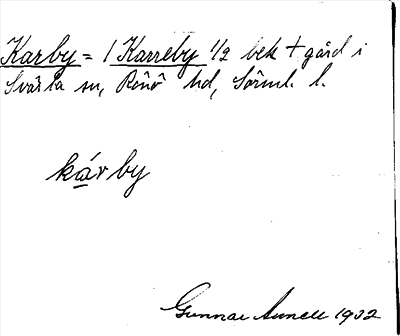 Karby = 1 Karreby 1/2 bek + gård i
Svärta sn, Rönö hd, Sörml. l.
kárby
Gunnar 1932